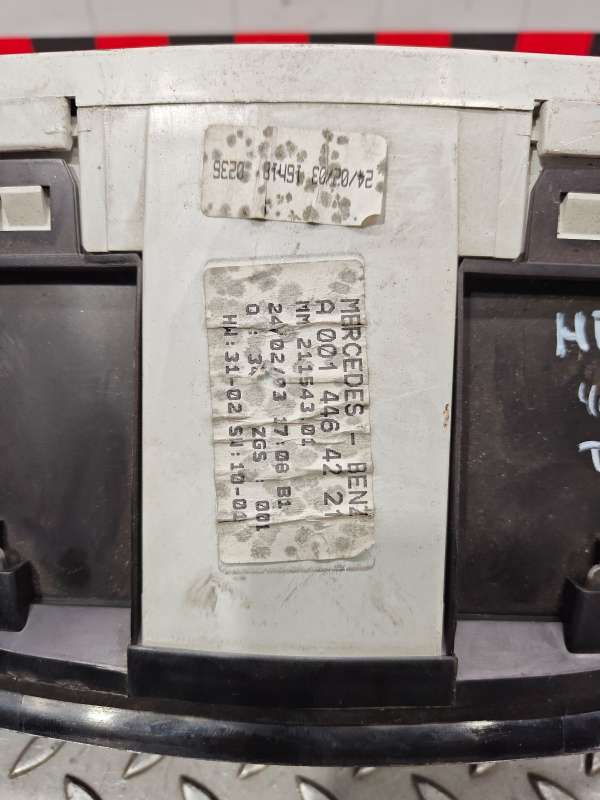 24/02/03 16h18 0236
MERCEDES - BENZ
A 001 446 42 21
MM 211543.01
24/02/03 17:08 B1
0 : 34 ZGS : 001
HW:31-02 SW:10-04